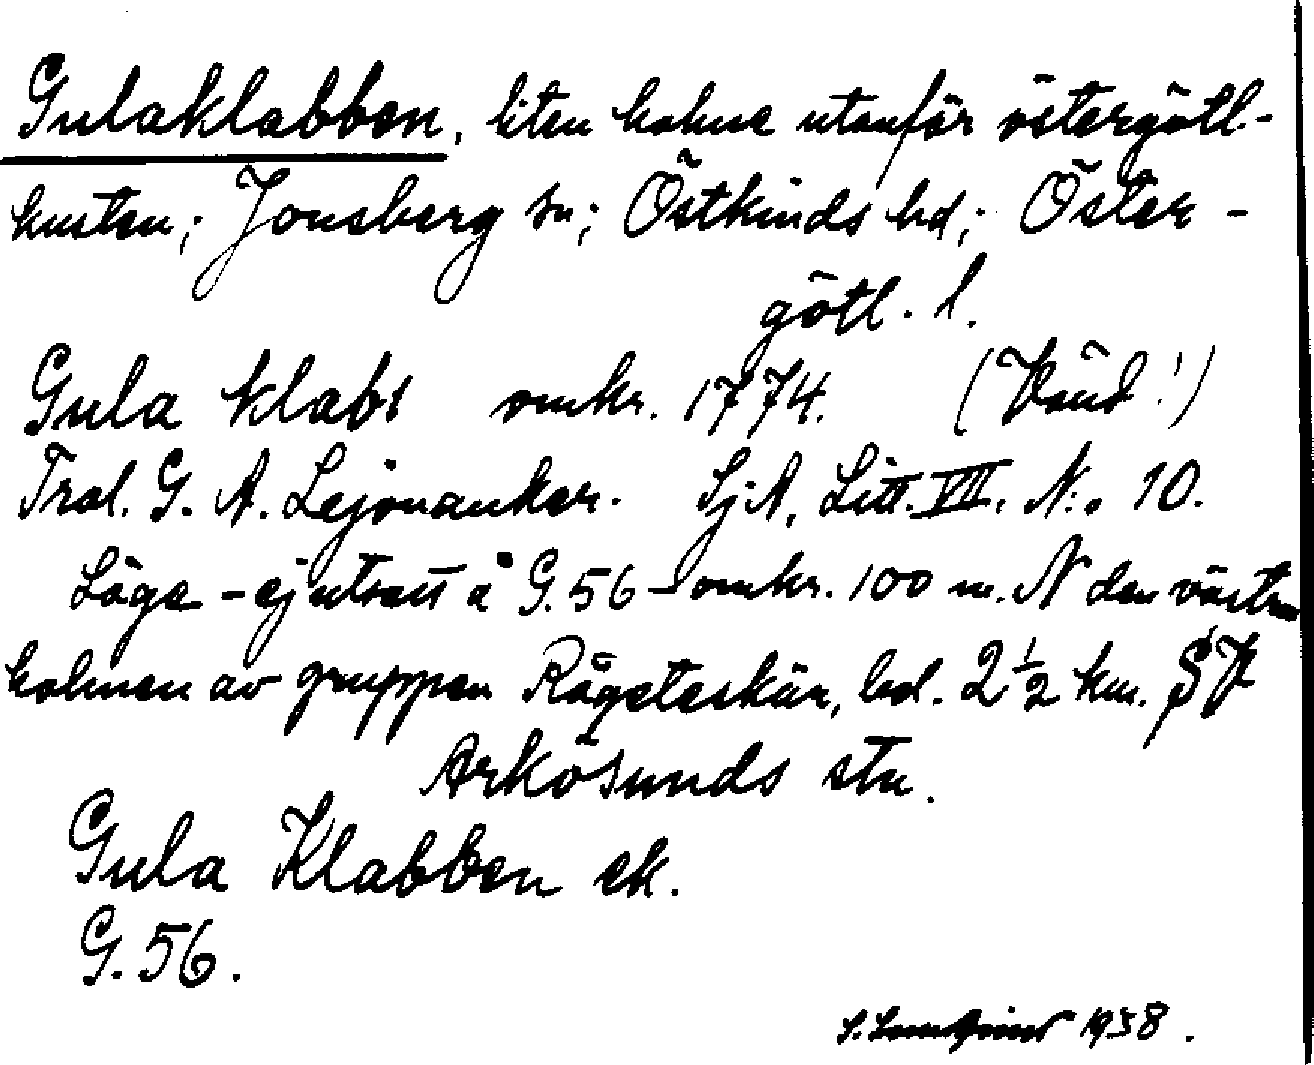 Gulaklabben, liten holme utanför östergötl.-
kusten; Jonsberg sn; Östkinds hd; Öster-
götl. l.
Gula klabs omkr. 1774. ( !)
Trol. G. A. Lejonanker. Sj.A, Litt. VII. N:o 10.
Läge - ej utsatt å G. 56 - omkr. 100 m. N den västra
holmen av gruppen Rågeteskär, bel. 2 1/2 km. SV
Arkösunds stn.
Gula Klabben ek.
G. 56.
1938.